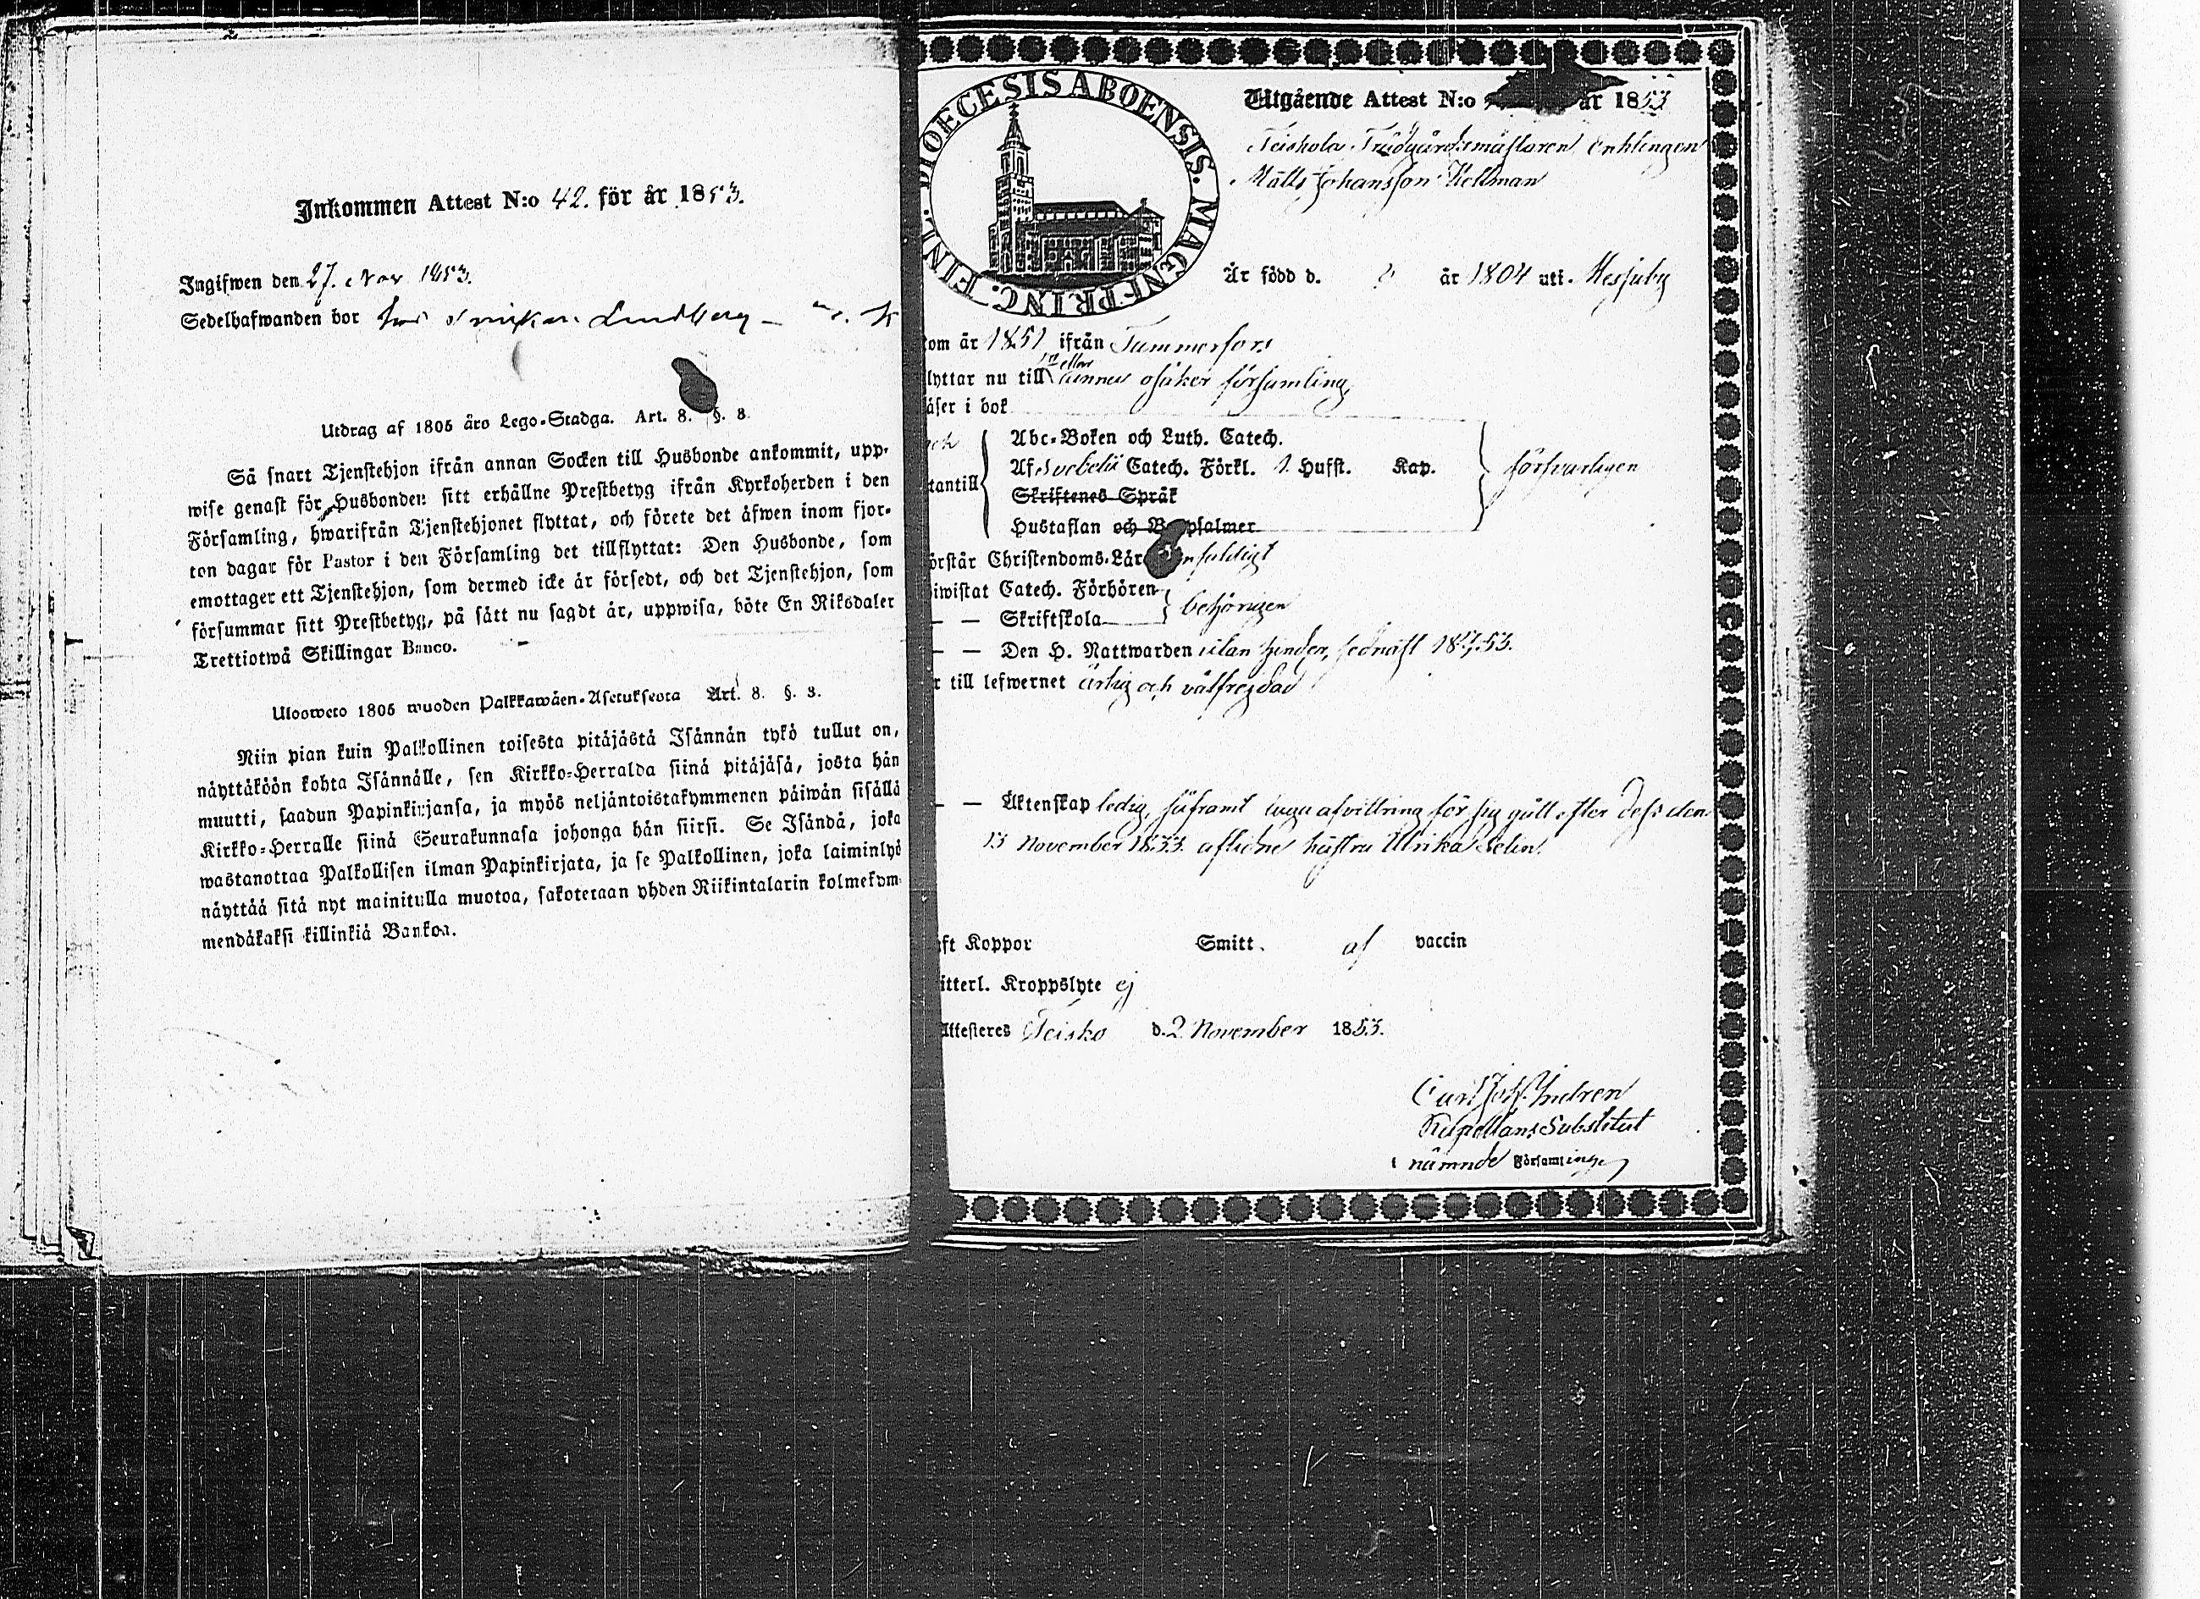 Inkommen Attest N:o 42. för år 1853.
Ingifwen den 27. Nov 1853.
Sedelhafwanden bor hos Lundberg
Utdrag af 1805 års Lego-Stadga. Art. 8. §. 8.
Så snart Tjenstehjon ifrån annan Socken till Husbonde ankommit, upp-
wise genast för Husbonden sitt erhållne Prestbetyg ifrån Kyrkoherden i den
Församling, hwarifrån Tjenstehjonet flyttat, och förete det åfwen inom fjor-
ton dagar för Pastor i den Församling det tillflyttat: Den Husbonde, som
emottager ett Tjenstehjon, som dermed icke år försedt, och det Tjenstehjon, som
försummar sitt Prestbetyg, på sått nu sagdt år, uppwisa, böte En Riksdaler
Trettiotwå Skillingar Banco.
Ulosweto 1805 wuoden Palkkawåen-Asetuksesta Art. 8. §. 8.
Niin pian kuin Palkollinen toisesta pitåjåstå Isånnån tykö tullut on,
nåyttåköön kohta Isånnålle, sen Kirkko-Herralda siinå pitåjåså, josta hån
muutti, saadun Papinkirjansa, ja myös neljåntoistakymmenen påiwån sisållå
Kirkko-Herralle siinå Seurakunnasa johonga hån siirsi. Se Isåndå, joka
wastanottaa Palkollisen ilman Papinkirjata, ja se Palkollinen, joka laiminlyö
nåyttåå sitå nyt mainitulla muotoa, sakotetaan yhden Riikintalarin kolmekym-
mendåkaksi killinkiå Bankoa.
DIOECESIS ABOENSIS. MAGNI PRINC. FINL.
Utgående Attest N:o år 1853
Teiskola Trädgårdsmästaren Enklingen
Matts Johansson Hellman
År född d. ? år 1804 uti Messuby
kom år 1851 ifrån Tammerfors
flyttar nu till en eller annan osäker församling,
låser i bok
och
utantill
Abc-Boken och Luth. Catech.
Af Svebelii Catech. Förkl. 1. Hufst. Kap.
Skriftenes Språk
Hustaflan och Botpsalmer
försvarligen
förstår Christendoms-Lår enfaldigt
Biwistat Catech. Förhören
— — Skriftskola
behörigen
— — Den H. Nattwarden utan hinder, sednast 53.
år till lefwernet ärlig och välfregdad
— — Åktenskap ledig, såframt inga afvittring för sig gått efter dess den
13 November 1833 aflidne hustru Ulrika Selin.
haft Koppor Smitt. af vaccin
witterl. Kroppslyte ej
Attesteres Teisko d. 2 November 1853.
Carl Joh. Indren
Kapellans Substitut
i nämnde Församlingen